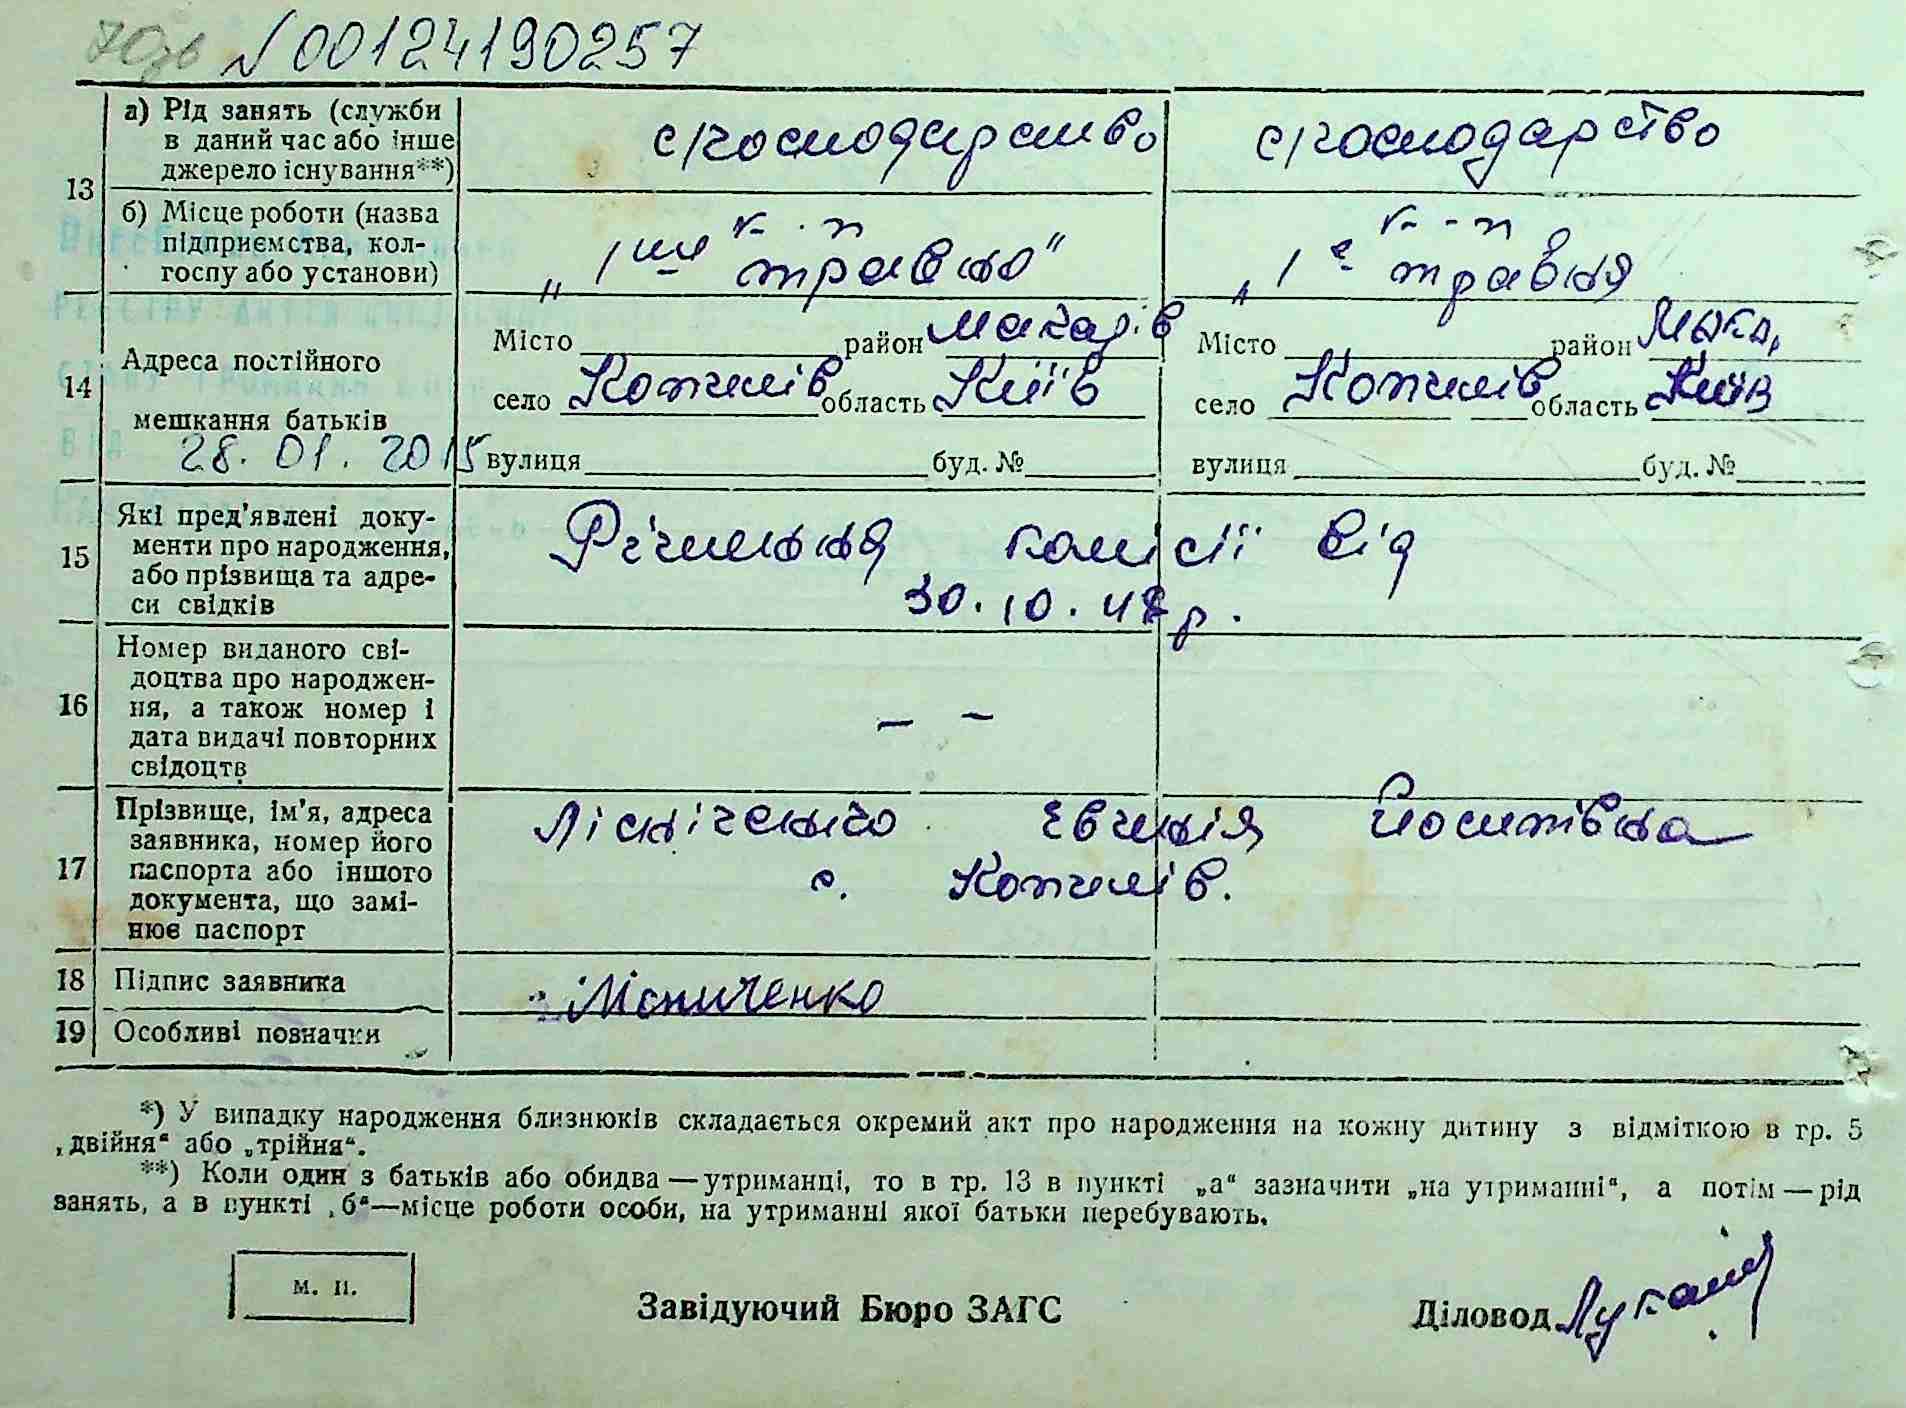 № 00124190257
а) Рід занять (служби в даний час або інше джерело існування**)
с/господарство с/господарство
13
б) Місце роботи (назва підприємства, колгоспу або установи)
к-п к-п
„1 травня" „1е травня
14
Адреса постійного мешкання батьків
28.01.2015
Місто район Макарів Місто район Мака,
село Копилів область Київ село Копилів область Київ
вулиця буд. № вулиця буд. №
15
Які пред'явлені документи про народження, або прізвища та адреси свідків
Рішення комісії від
30.10.48р.
16
Номер виданого свідоцтва про народження, а також номер і дата видачі повторних свідоцтв
— —
17
Прізвище, ім'я, адреса заявника, номер його паспорта або іншого документа, що замінює паспорт
Лісніченко Євгенія Йосипівна
с. Копилів.
18 Підпис заявника Лісниченко
19 Особливі позначки
*) У випадку народження близнюків складається окремий акт про народження на кожну дитину з відміткою в гр. 5
„двійня" або „трійня".
**) Коли один з батьків або обидва — утриманці, то в гр. 13 в пункті „а" зазначити „на утриманні", а потім — рід
занять, а в пункті „б"—місце роботи особи, на утриманні якої батьки перебувають.
м. п.
Завідуючий Бюро ЗАГС Діловод